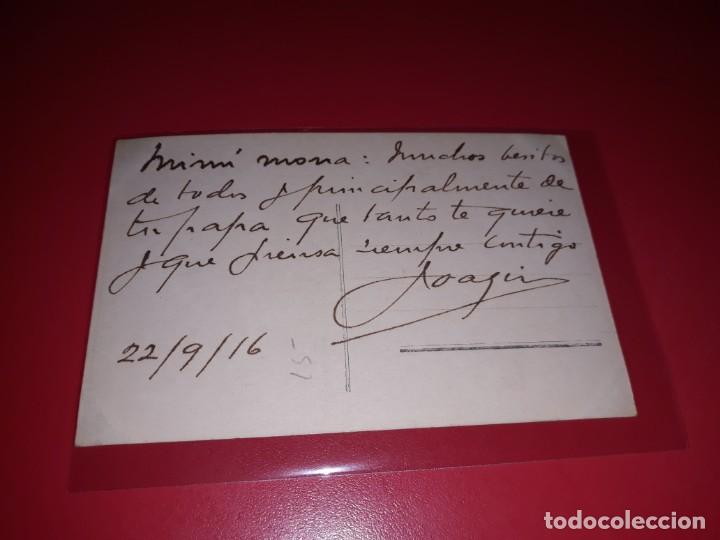 Mimí mona: Muchos besitos
de todos y principalmente de
tu papa que tanto te quiere
y que piensa siempre contigo
Joaqin
22/9/16
15-
todocoleccion.net